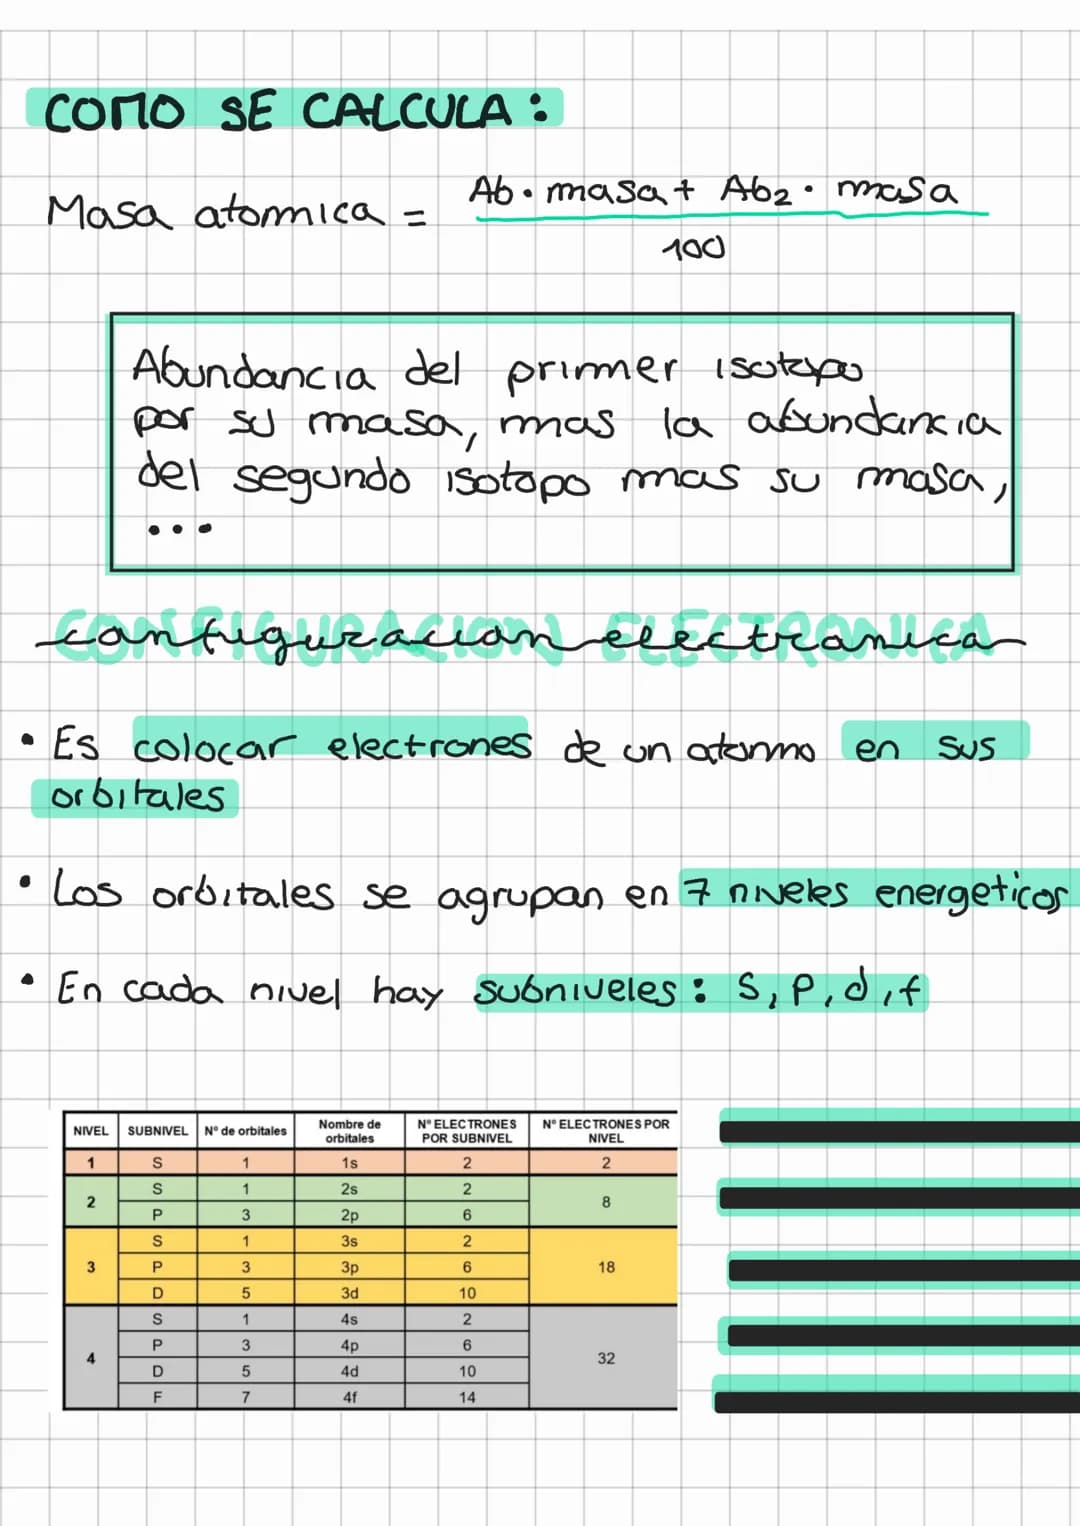 COMO SE CALCULA:
Masa atomica = Ab · masa + Ab2 · masa
100
Abundancia del primer isotopo
por su masa, mas la abundancia
del segundo isotopo mas su masa,
...
configuracion electronica
• Es colocar electrones de un atomo en sus
orbitales
• Los orbitales se agrupan en 7 niveles energeticos
• En cada nivel hay subniveles: s, p, d, f
NIVEL SUBNIVEL Nº de orbitales Nombre de orbitales Nº ELECTRONES POR SUBNIVEL Nº ELECTRONES POR NIVEL
1 S 1 1s 2 2
2 S 1 2s 2 8
P 3 2p 6
3 S 1 3s 2 18
P 3 3p 6
D 5 3d 10
4 S 1 4s 2 32
P 3 4p 6
D 5 4d 10
F 7 4f 14